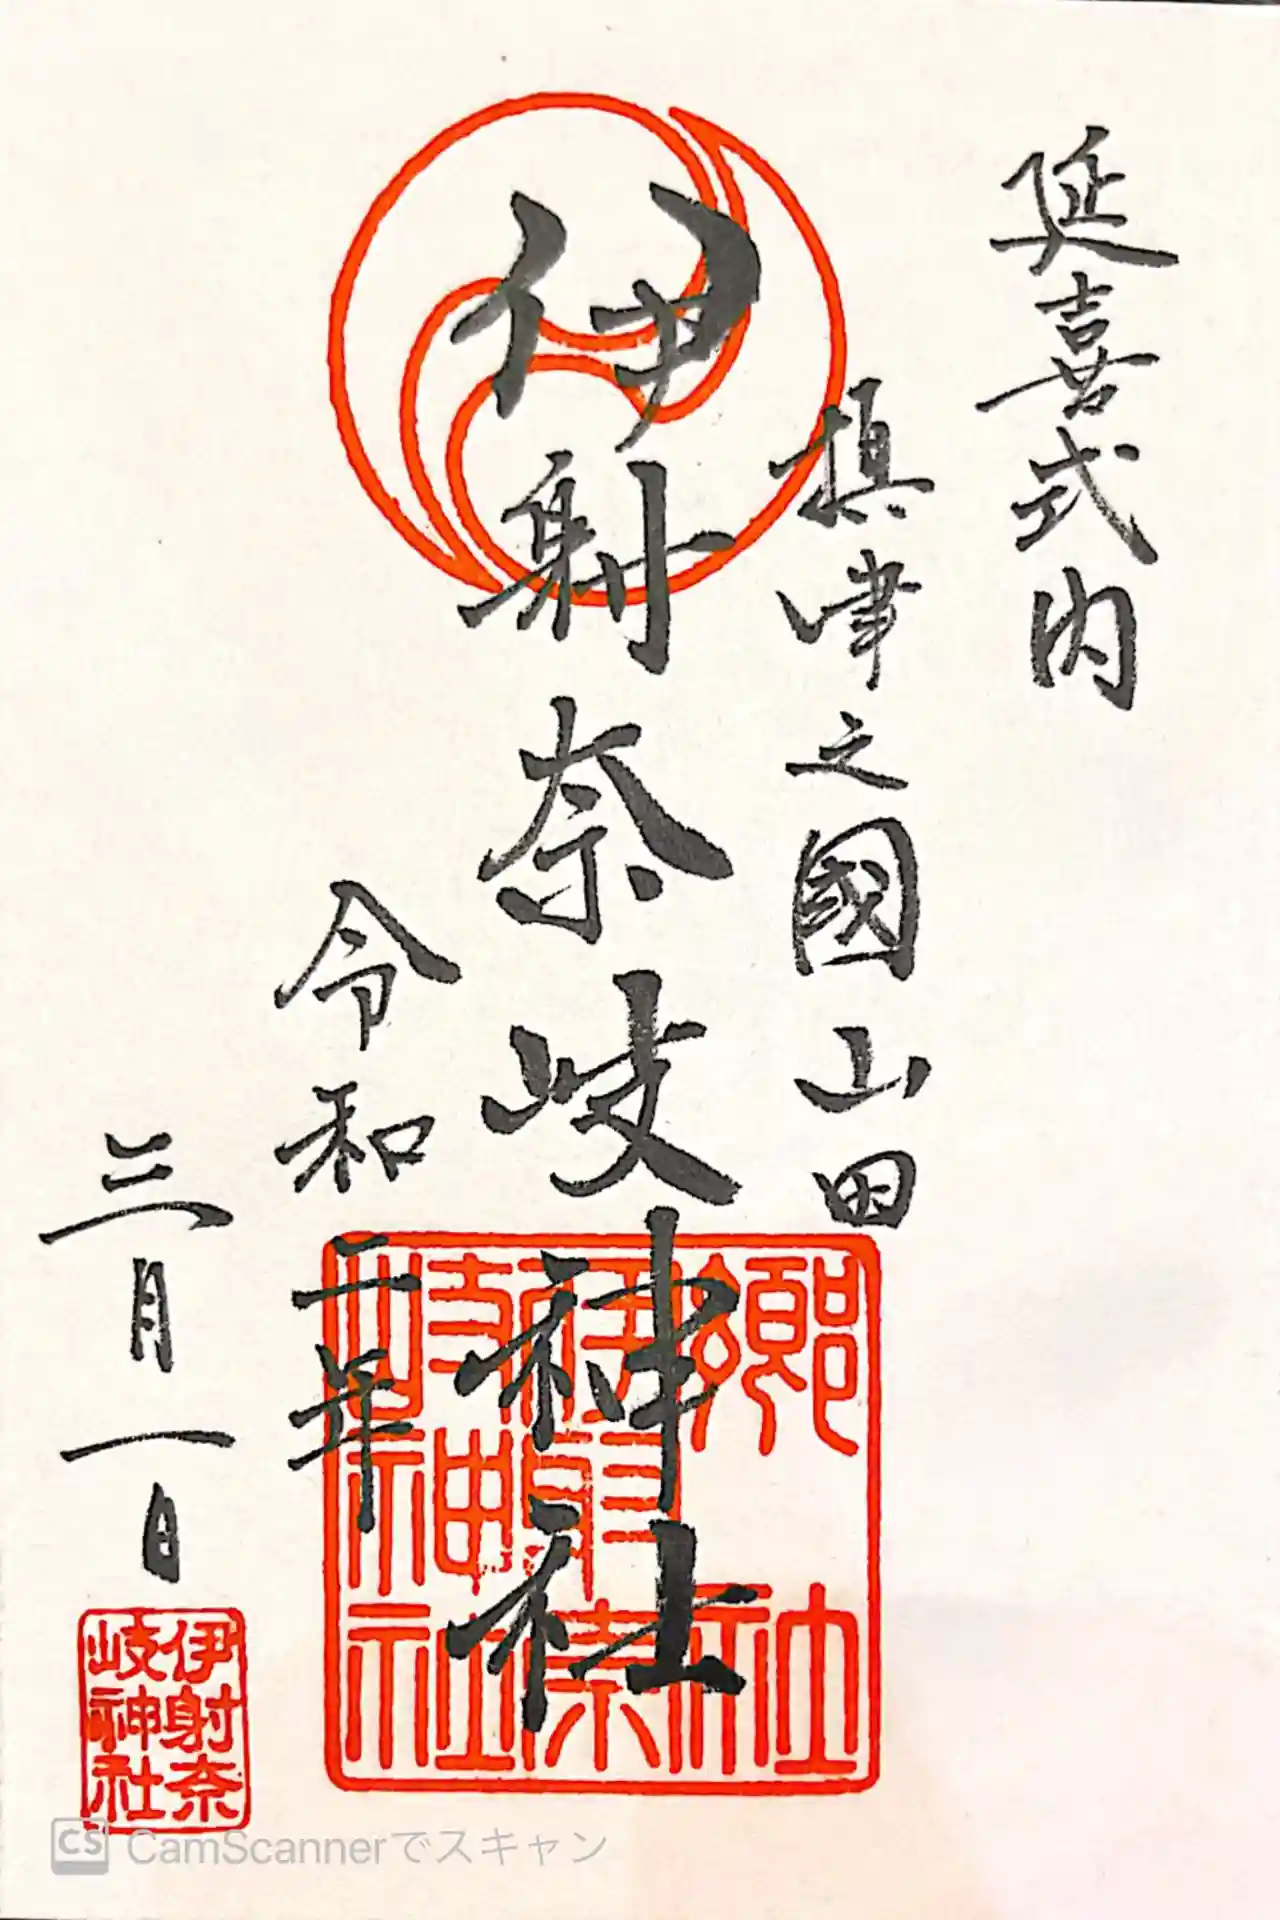 延喜式内
摂津之國山田
伊射奈岐神社
令和二年
三月一日
伊射奈
岐神社
CS CamScannerでスキャン